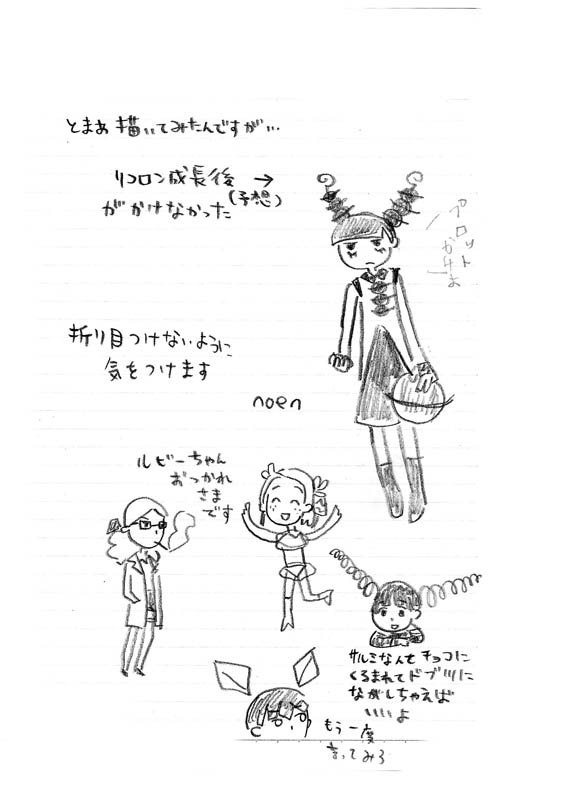 とまぁ描いてみたんですが…
リコロン成長後 →
(予想)
がかけなかった
プロット
かけよ
折り目つけないように
気をつけます
noen
ルビーちゃん
おつかれ
さま
です
サルミなんてチョコに
くるまれてドブツに
ながしちゃえば
いいよ
もう一度
言ってみろ